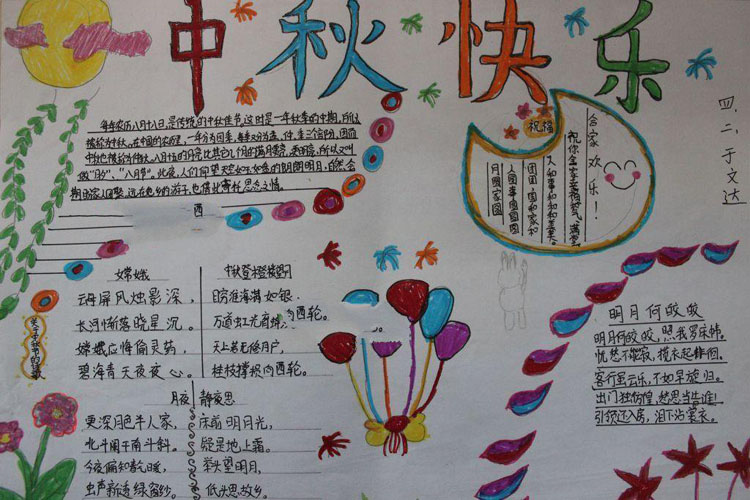 中秋快乐
四.二.于文达
每年农历八月十八日,是传统的中秋佳节。这时是一年秋季的中期,所以
被称为中秋。在中国的农历里,一年分为四季,每季又分为孟、仲、季三个部分,因而
中秋也被称为仲秋。八月十五的月亮比其它几个月的满月更亮,更明亮,所以又叫
做"月夕","八月节"。此夜,人们仰望天空如玉如盘的朗朗明月,自然会
期盼家人团聚。远在他乡的游子,也借此寄托思乡之情。
西
祝福
合家欢乐!
祝你全家幸福
人和事和和和美美
团团圆圆家和
人圆事圆圆圆圆
月圆家圆
嫦娥
云母屏风烛影深,
长河渐落晓星沉。
嫦娥应悔偷灵药,
碧海青天夜夜心。
中秋登楼望月
目穷淮海满如银,
万道虹光育蚌
天上若无修月户,
桂枝撑损向西轮。
向西轮。
月夜
更深月色半人家,
北斗阑干南斗斜。
今夜偏知春气暖,
虫声新透绿窗纱。
静夜思
床前明月光,
疑是地上霜。
举头望明月,
低头思故乡。
明月何皎皎
明月何皎皎,照我罗床帏。
忧愁不能寐,揽衣起徘徊。
客行虽云乐,不如早旋归。
出门独彷徨,愁思当告谁!
引领还入房,泪下沾裳衣。